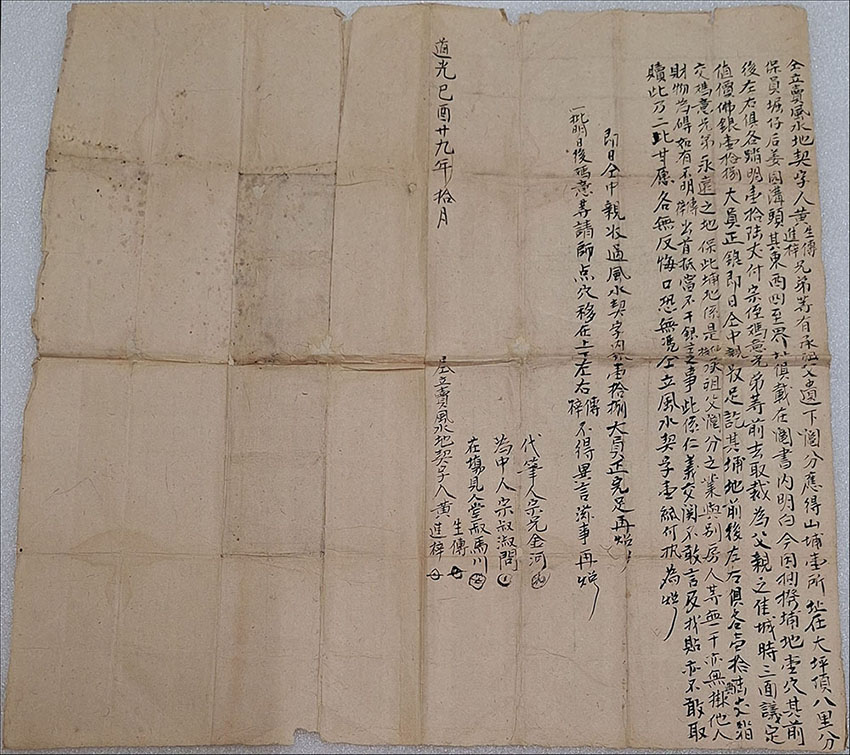 仝立賣風水地契字人黃生傳進梓兄弟等有承祖父遺下鬮分應得山埔壹所址在大坪頂八里分
保員堀仔后姜園溝頭其東西四至界址俱載在鬮書內明白今因抽撥埔地壹穴其前
後左右俱各踏明壹拾陸丈付宗侄媽意兄弟等前去取裁為父親之佳城時三面議定
值價佛銀壹拾捌大員正銀即日仝中親收足訖其埔地前後左右俱各壹拾陸丈踏
交媽意兄弟永遠之地保此埔地係是承祖父鬮分之業與別房人等無干亦無掛他人
財物為碍如有不明傳梓出首抵當不干銀主之事此係仁義交関不敢言及找貼亦不敢取
贖此乃二比甘愿各無反悔口恐無憑仝立風水契字壹紙付执為炤
即日仝中親收過風水契字內銀壹拾捌大員正完足再炤
一批明日後媽意等請師点穴移在上下左右傳梓不得異言滋事再炤
代筆人宗兄金河
為中人宗叔淑問
在塲見人堂叔馬川
生傳
仝立賣風水地契字人黃進梓
道光己酉廿九年拾月